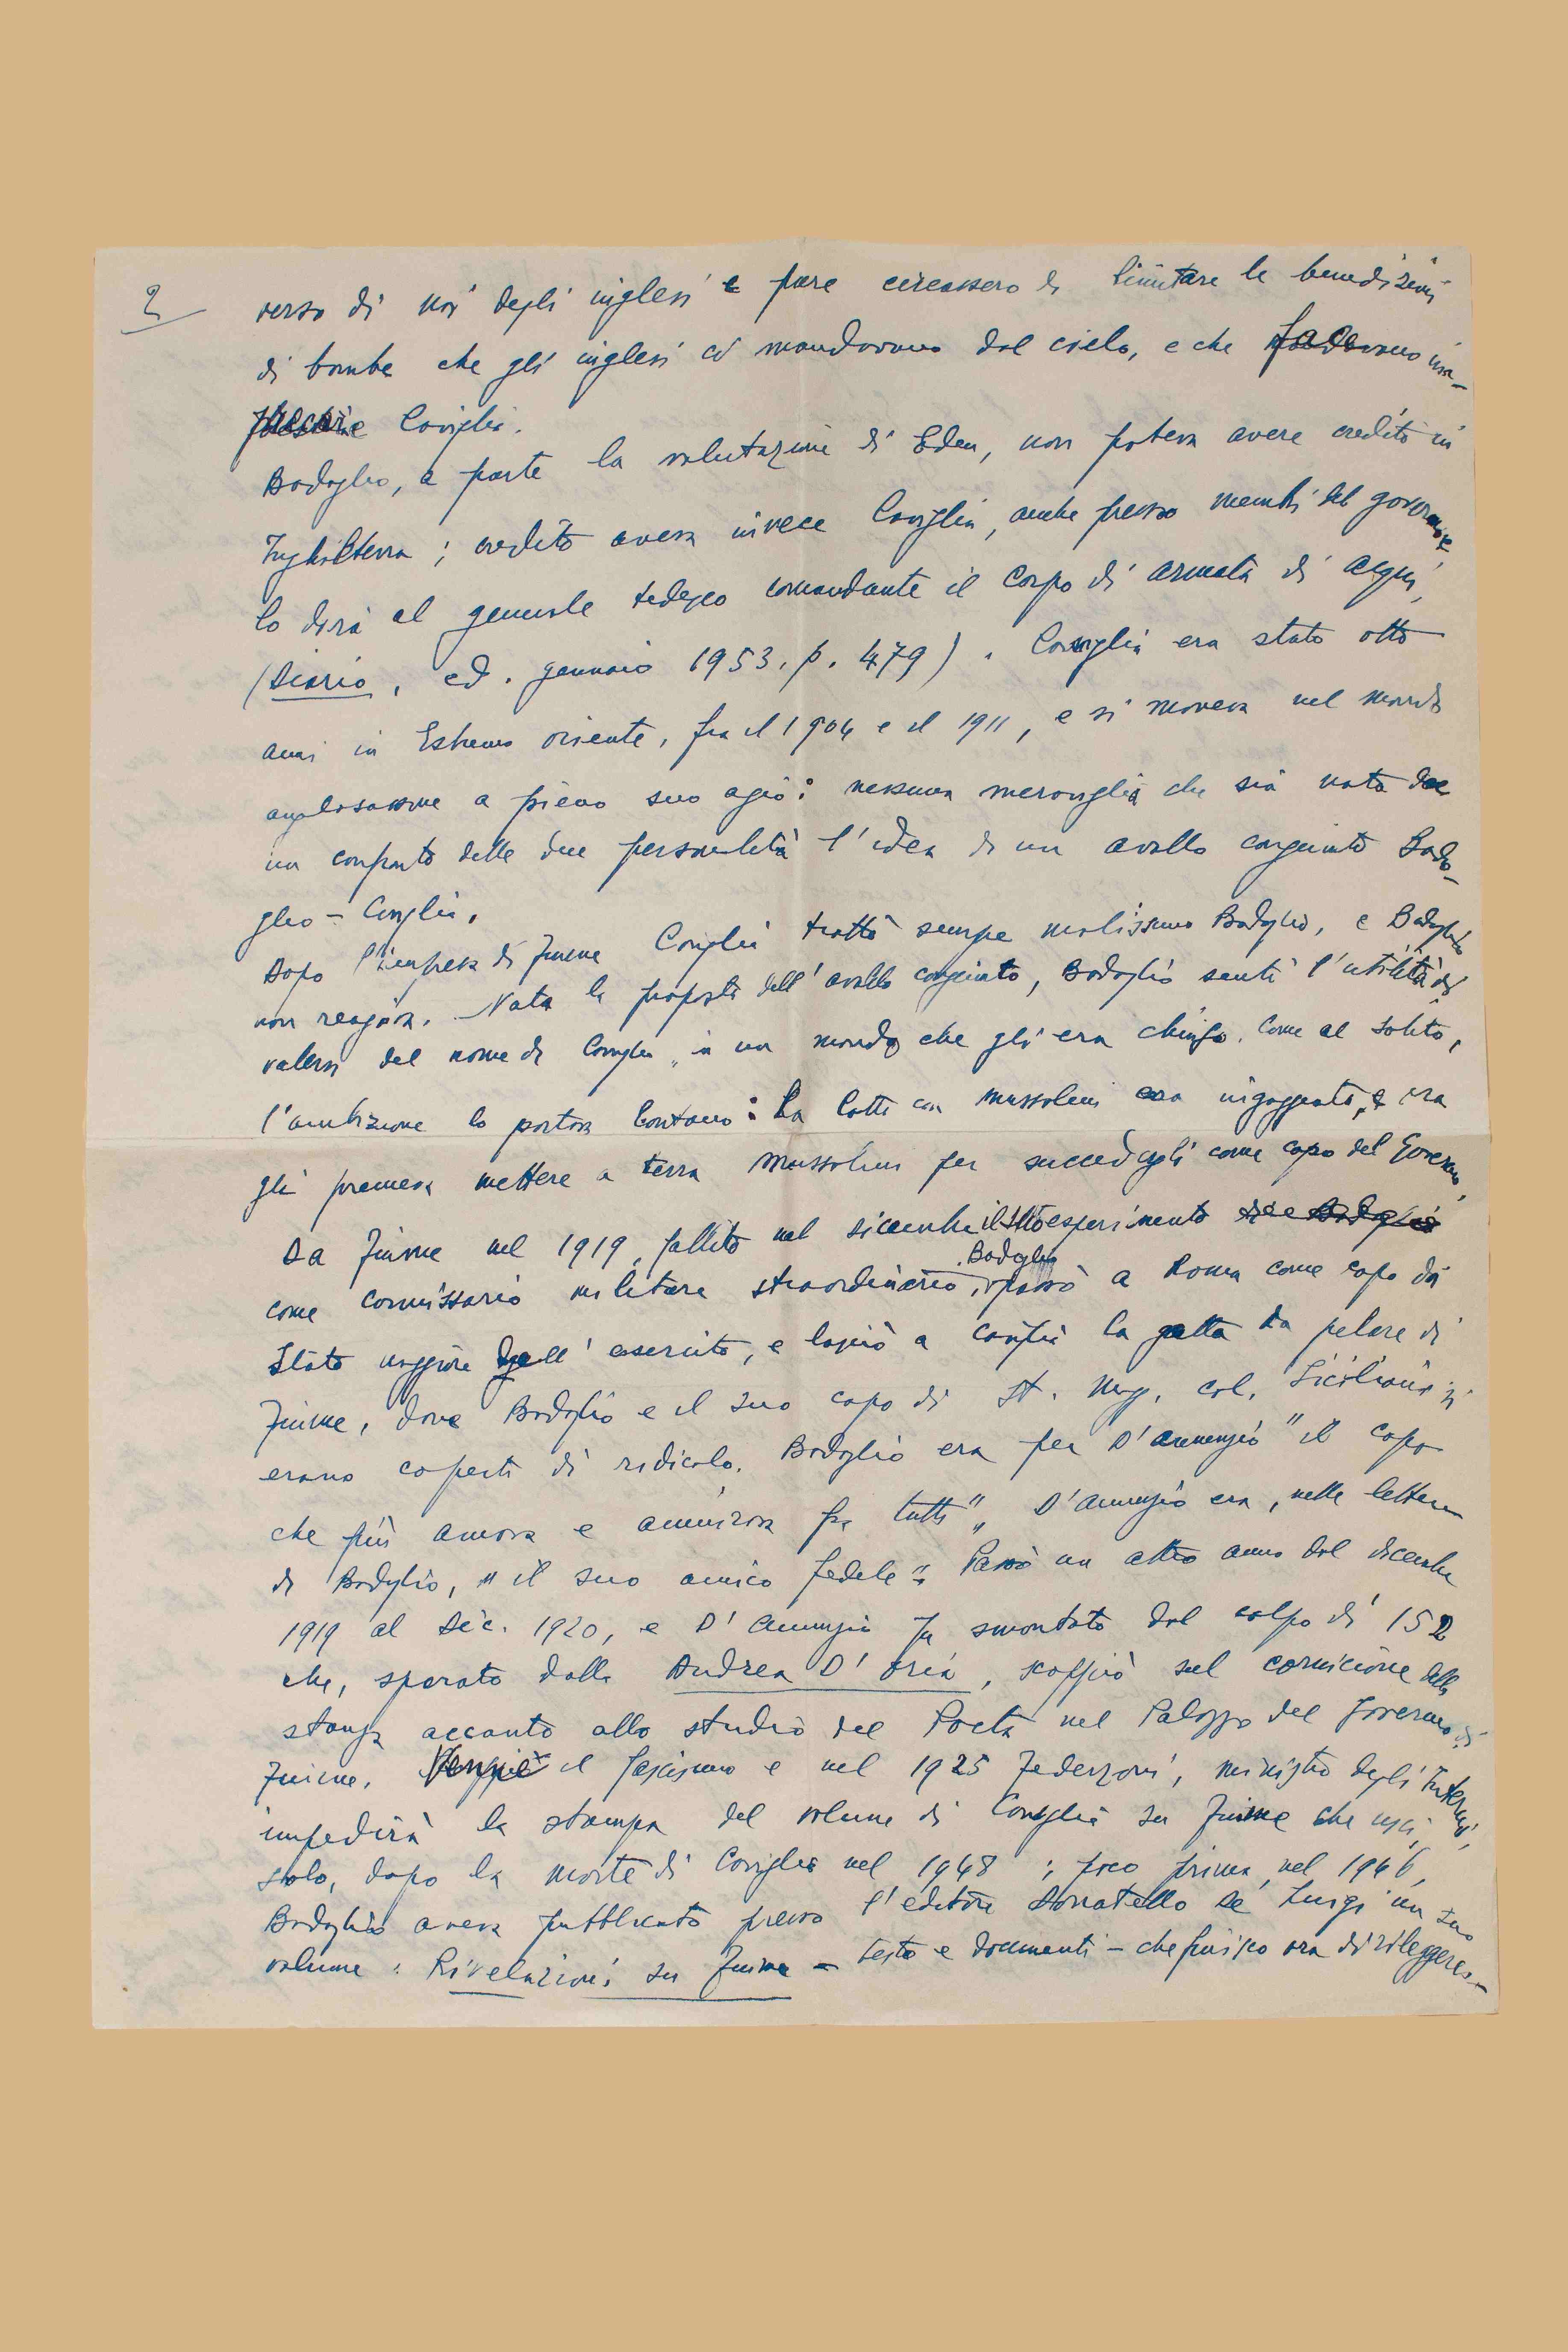 2
verso di noi degli inglesi e pare cercassero di limitare le benedizioni
di bombe che gli inglesi ci mandavano dal cielo, e che facevano
Caviglia.
Badoglio, a parte la valutazione di Eden, non poteva avere credito in
Inghilterra; credito aveva invece Caviglia, anche presso membri del governo
lo dirà al generale tedesco comandante il corpo di armata di Acqui,
(Diario, ed. gennaio 1953, p. 479). Caviglia era stato otto
anni in Estremo oriente, fra il 1904 e il 1911, e si moveva nel mondo
anglosassone a pieno suo agio: nessuna meraviglia che sia nata da
un confronto delle due personalità l'idea di un avallo congiunto Bado-
glio - Caviglia.
Dopo l'impresa di Fiume Caviglia trattò sempre malissimo Badoglio, e Badoglio
non reagiva. Nata la proposta dell'avallo congiunto, Badoglio sentì l'utilità di
valersi del nome di Caviglia in un mondo che gli era chiuso. Come al solito,
l'ambizione lo portava lontano: la lotta con Mussolini era ingaggiata, e ora
gli premeva mettere a terra Mussolini per succedergli come capo del Governo,
Da Fiume nel 1919, fallito nel dicembre il suo esperimento di Badoglio
Badoglio
come commissario militare straordinario, passò a Roma come capo di
Stato maggiore dell'esercito, e lasciò a Caviglia la gatta da pelare di
Fiume, dove Badoglio e il suo capo di St. Magg. col. Siciliani si
erano coperti di ridicolo. Badoglio era per D'Annunzio "il capo
che più amava e ammirava fra tutti", D'Annunzio era, nelle lettere
di Badoglio, "il suo amico fedele". Passò un altro anno dal dicembre
1919 al dic. 1920, e D'Annunzio fu smontato dal colpo di 152
che, sparato dalla Andrea D'Oria, scoppiò sul cornicione della
stanza accanto allo studio del Poeta nel Palazzo del Governo di
Fiume. Venne il fascismo e nel 1925 Federzoni, ministro degli Interni,
impedirà la stampa del volume di Caviglia su Fiume che uscì,
solo, dopo la morte di Caviglia nel 1948; poco prima, nel 1946,
Badoglio aveva pubblicato presso l'editore Donatello De Luigi un suo
volume: Rivelazioni su Fiume - testo e documenti - che finisco ora di rileggere.-